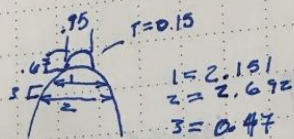 .95
r=0.15
.6
1
2
3
1=2.151
2=2.692
3=0.47